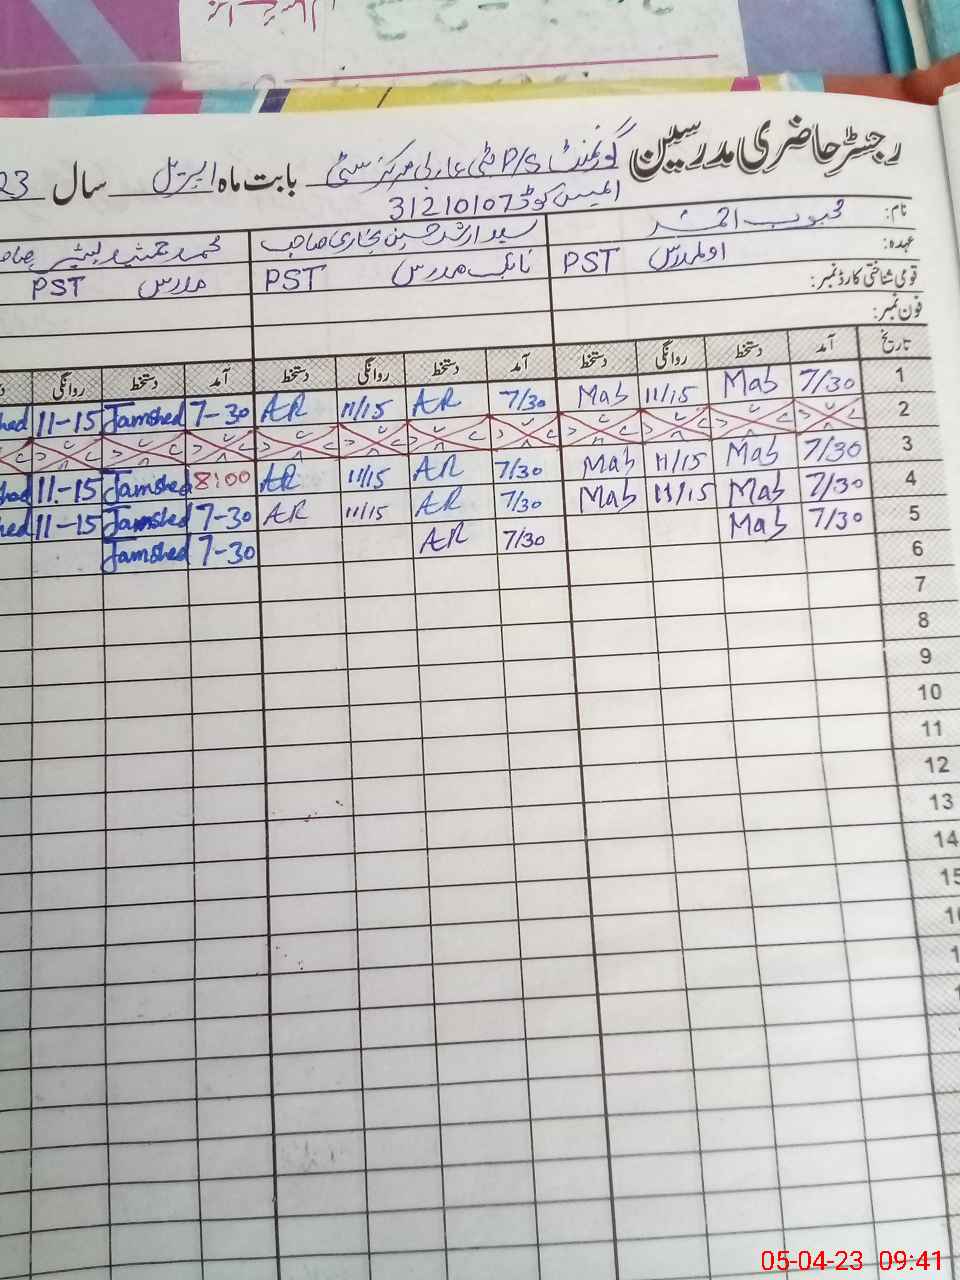 رجسٹر حاضری مدرسین گورنمنٹ P/S بابت ماہ اپریل سال 23
31210107
نام: محبوب احمد سید ارشد حسین بخاری صاحب محمد جمشید
عہدہ: اول مدرس PST نائب مدرس PST مدرس PST
قومی شناختی کارڈ نمبر:
فون نمبر:
تاریخ آمد دستخط روانگی دستخط آمد دستخط روانگی دستخط آمد دستخط روانگی
1 7/30 Mab 11/15 Mab 7/30 AR 11/15 AR 7-30 Jamshed 11-15 hed
2
3 7/30 Mab 11/15 Mab 7/30 AR 11/15 AR 8:00 Jamshed 11-15 hed
4 7/30 Mab 11/15 Mab 7/30 AR 11/15 AR 7-30 Jamshed 11-15 hed
5 7/30 Mab 7/30 AR 7-30 Jamshed
6
7
8
9
10
11
12
13
14
15
05-04-23 09:41